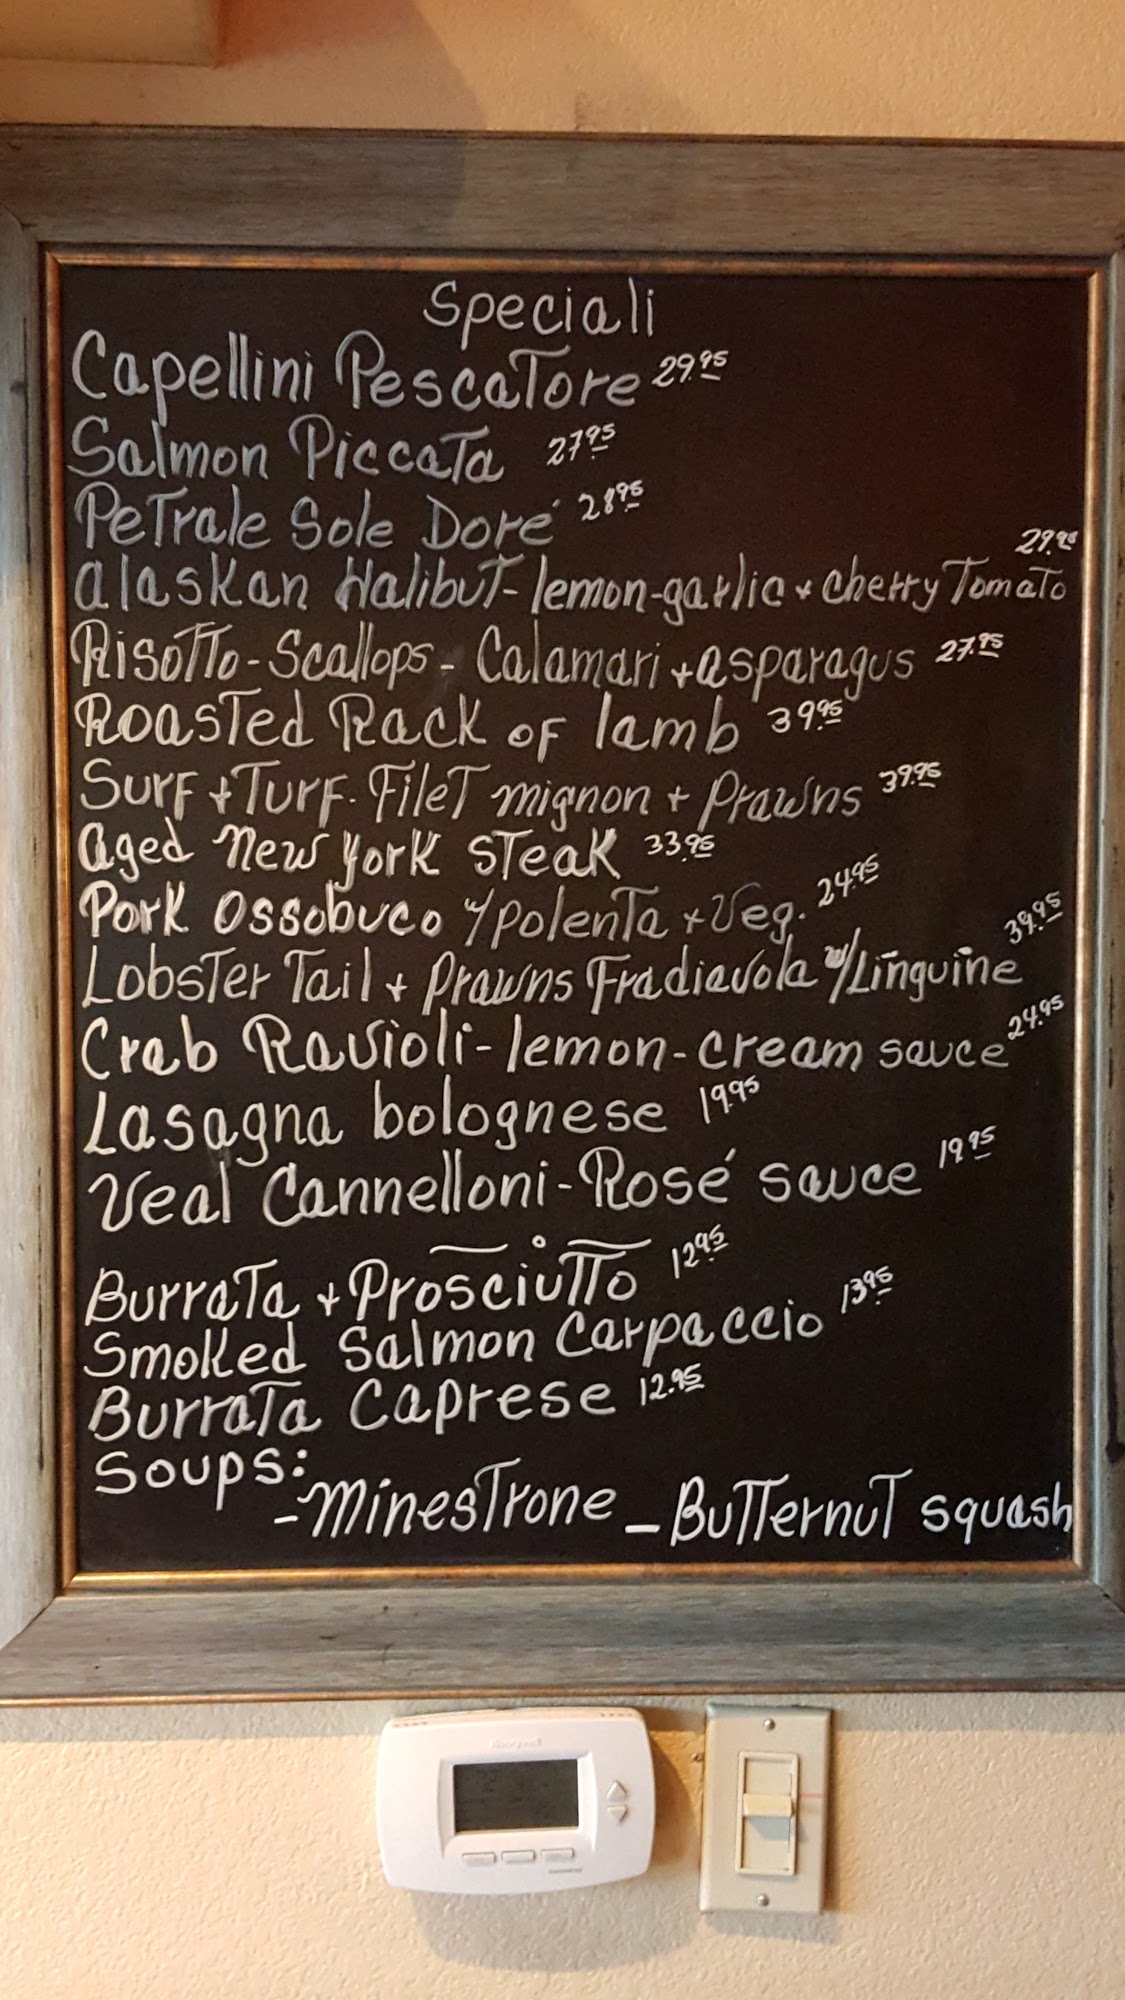 Speciali
Capellini Pescatore 29.95
Salmon Piccata 27.95
Petrale Sole Doré 28.95
29.95
Alaskan Halibut-lemon-garlic + Cherry Tomato
Risotto-Scallops-Calamari + asparagus 27.95
Roasted Rack of lamb 39.95
Surf + Turf. Filet mignon + Prawns 39.95
Aged New York Steak 33.95
Pork Ossobuco w/polenta + Veg. 24.95
Lobster Tail + Prawns Fradiavola w/Linguine 39.95
Crab Ravioli-lemon-cream sauce 24.95
Lasagna bolognese 19.95
Veal Cannelloni-Rosé sauce 19.95
Burrata + Prosciutto 12.95
Smoked Salmon Carpaccio 13.95
Burrata Caprese 12.95
Soups:
-Minestrone - Butternut squash
Honeywell